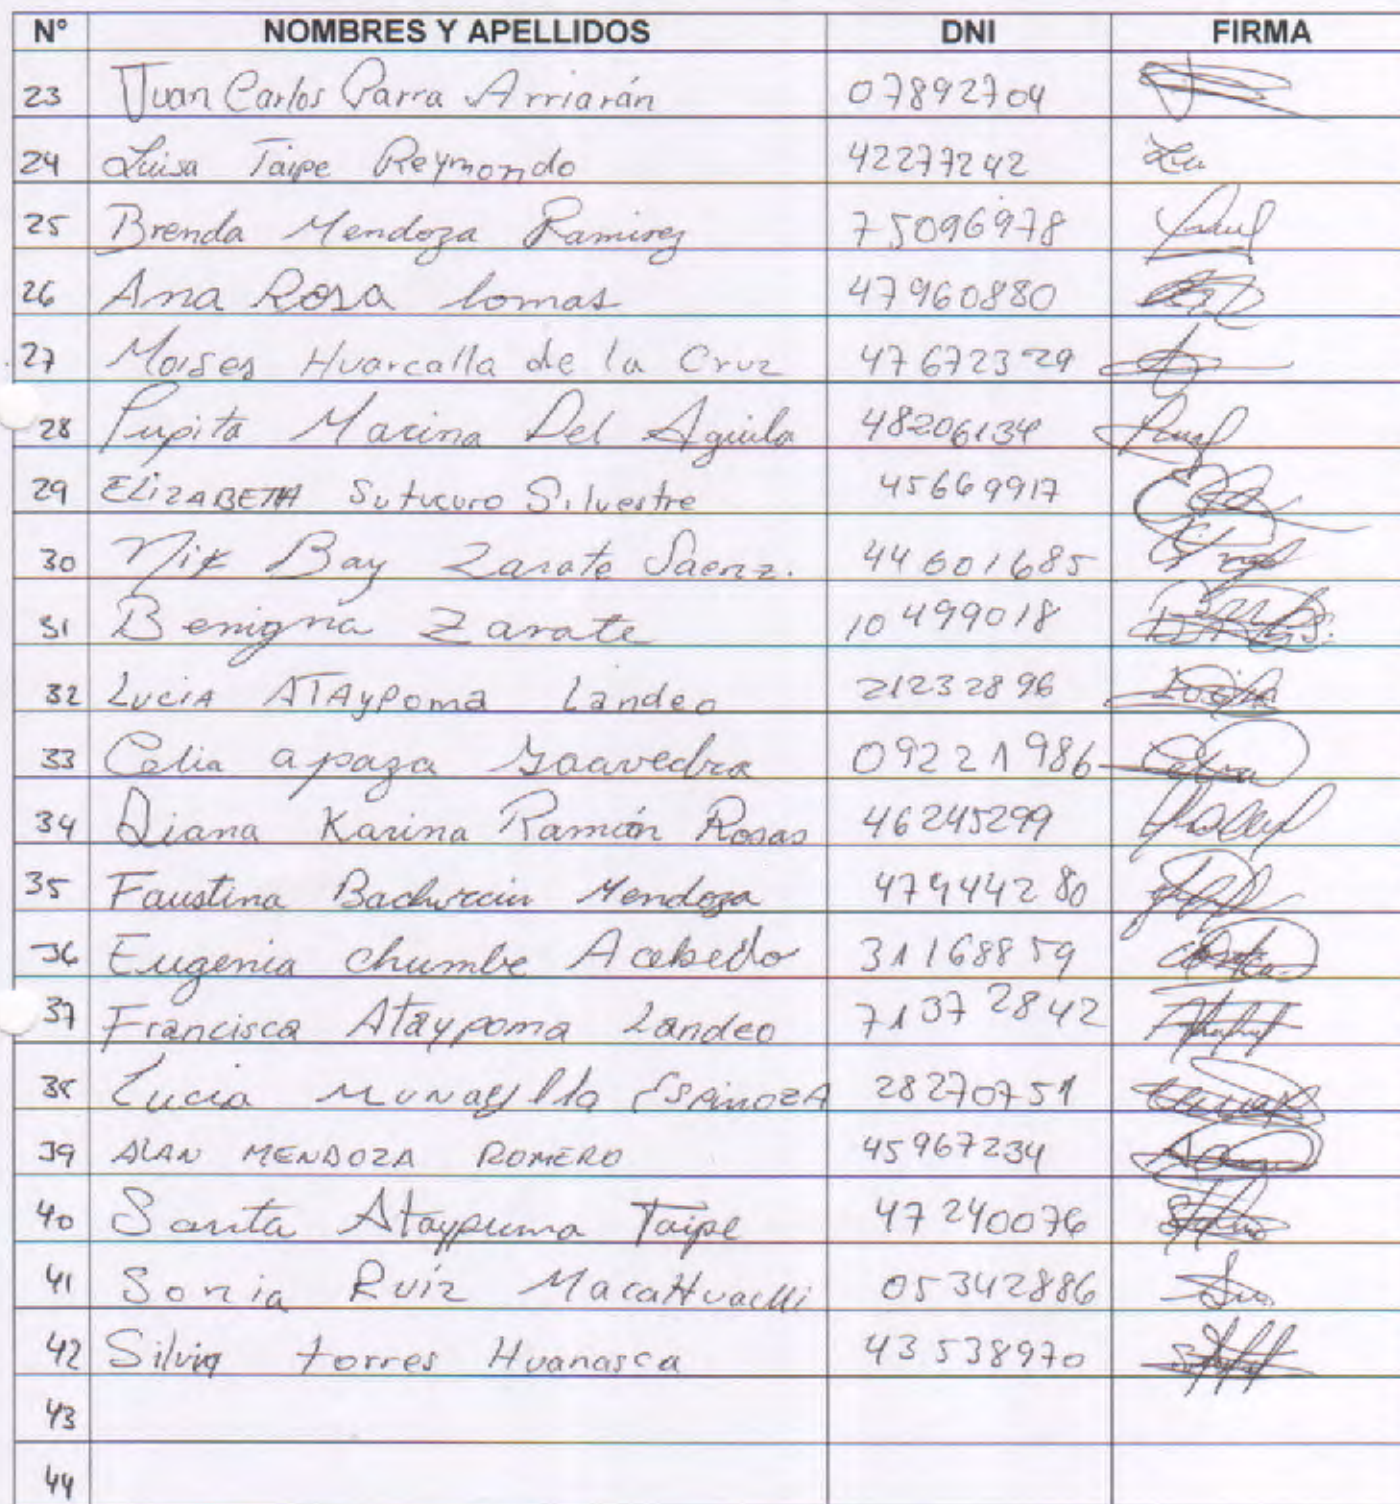 N° NOMBRES Y APELLIDOS DNI FIRMA
23 Juan Carlos Parra Arriarán 07892704
24 Luisa Taipe Reymondo 42277242
25 Brenda Mendoza Ramirez 75096978
26 Ana Rosa lomas 47960880
27 Moises Huarcalla de la Cruz 47672329
28 Pupita Marina Del Aguila 48206134
29 ELIZABETH Sutucuro Silvestre 45669917
30 Nix Bay Zarate Saenz. 44601685
31 Benigna Zarate 10499018
32 Lucia ATAypoma Landeo 21232896
33 Celia apaza Saavedra 09221986
34 Diana Karina Ramón Rosas 46245299
35 Faustina Mendoza 47944280
36 Eugenia chumbe Acebedo 31168859
37 Francisca Ataypoma Landeo 71372842
38 Lucia ESpinoZA 28270751
39 ALAN MENDOZA ROMERO 45967234
40 Santa Ataypuma Taipe 47240076
41 Sonia Ruiz 05342886
42 Silvia torres Huanasca 43538970
43
44